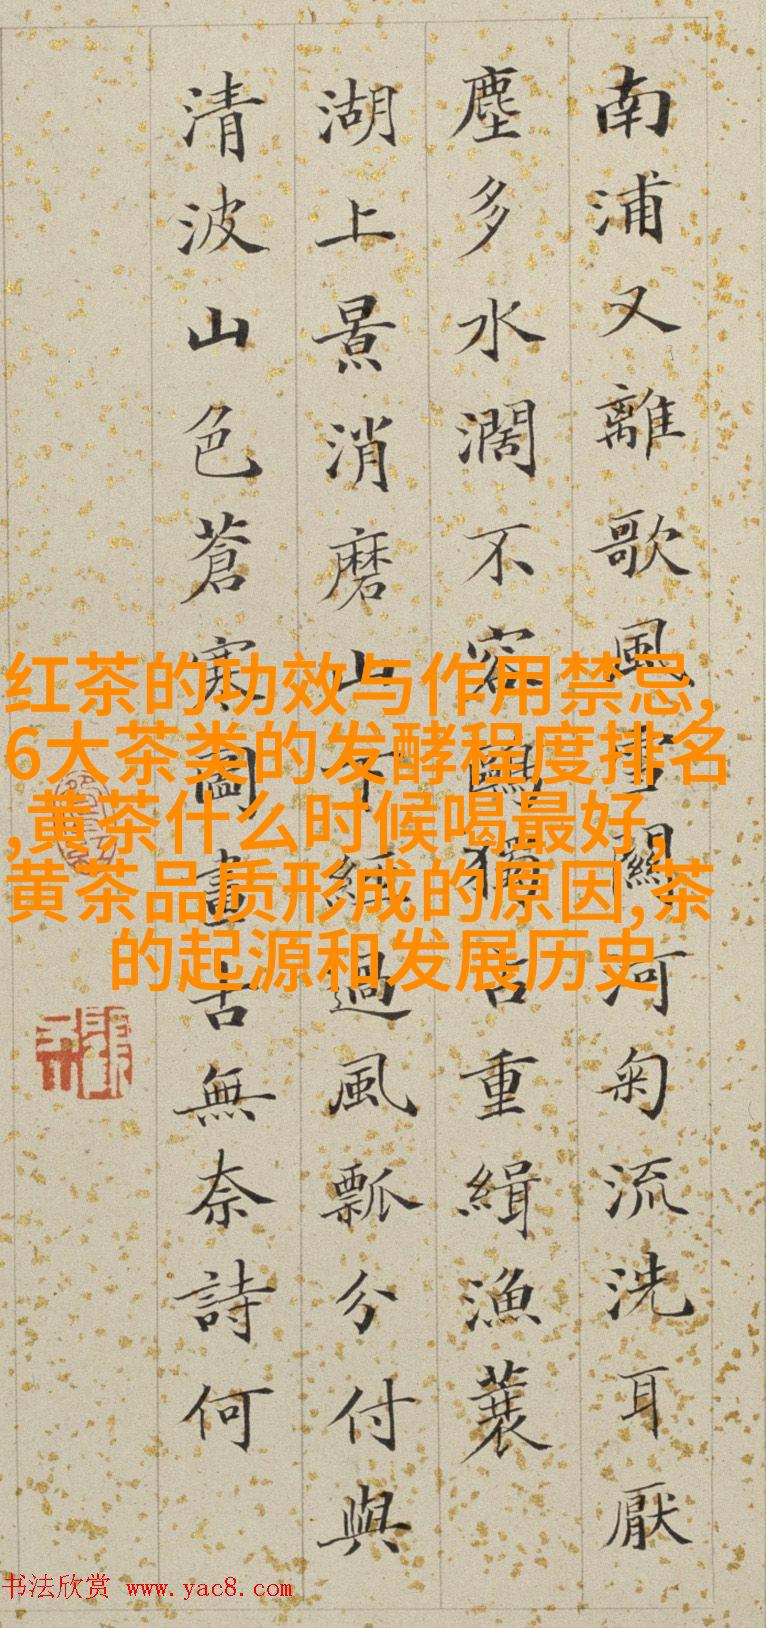 南浦又離歌風雪關河匊流洗耳厭
塵多水濶不容鷗獨占重緝漁蓑
湖上景消磨山經過風瓢分付與
清波山色蒼寒圖畫古無奈詩何
红茶的功效与作用禁忌,
6大茶类的发酵程度排名
,黄茶什么时候喝最好,
黄茶品质形成的原因,茶
的起源和发展历史
书法欣赏 www.yac8.com